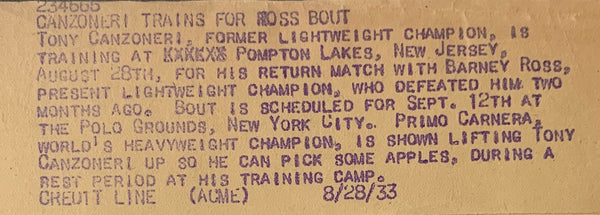 234665
CANZONERI TRAINS FOR ROSS BOUT
TONY CANZONERI, FORMER LIGHTWEIGHT CHAMPION, IS
TRAINING AT XXXXXX POMPTON LAKES, NEW JERSEY,
AUGUST 28TH, FOR HIS RETURN MATCH WITH BARNEY ROSS,
PRESENT LIGHTWEIGHT CHAMPION, WHO DEFEATED HIM TWO
MONTHS AGO. BOUT IS SCHEDULED FOR SEPT. 12TH AT
THE POLO GROUNDS, NEW YORK CITY. PRIMO CARNERA,
WORLD'S HEAVYWEIGHT CHAMPION, IS SHOWN LIFTING TONY
CANZONERI UP SO HE CAN PICK SOME APPLES, DURING A
REST PERIOD AT HIS TRAINING CAMP.
CREDIT LINE (ACME) 8/28/33